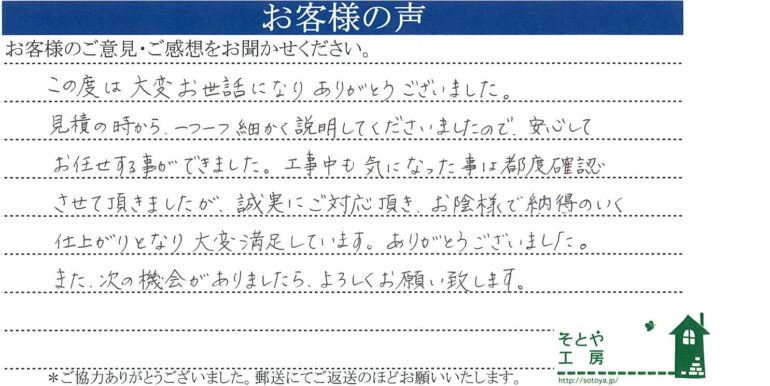 お客様の声
お客様のご意見・ご感想をお聞かせください。
この度は大変お世話になりありがとうございました。
見積の時から、一つ一つ細かく説明してくださいましたので、安心して
お任せする事ができました。工事中も気になった事は都度確認
させて頂きましたが、誠実にご対応頂き、お陰様で納得のいく
仕上がりとなり大変満足しています。ありがとうございました。
また、次の機会がありましたら、よろしくお願い致します。
そとや
工房
http://sotoya.jp/
*ご協力ありがとうございました。郵送にてご返送のほどお願いいたします。